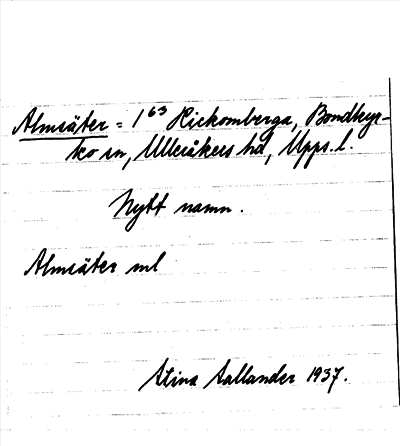 Almsäter = 1⁶³ Rickomberga, Bondkyr-
ko sn, Ulleråkers hd, Upps. l.
Nytt namn.
Almsäter ml
Stina Sallander 1937.